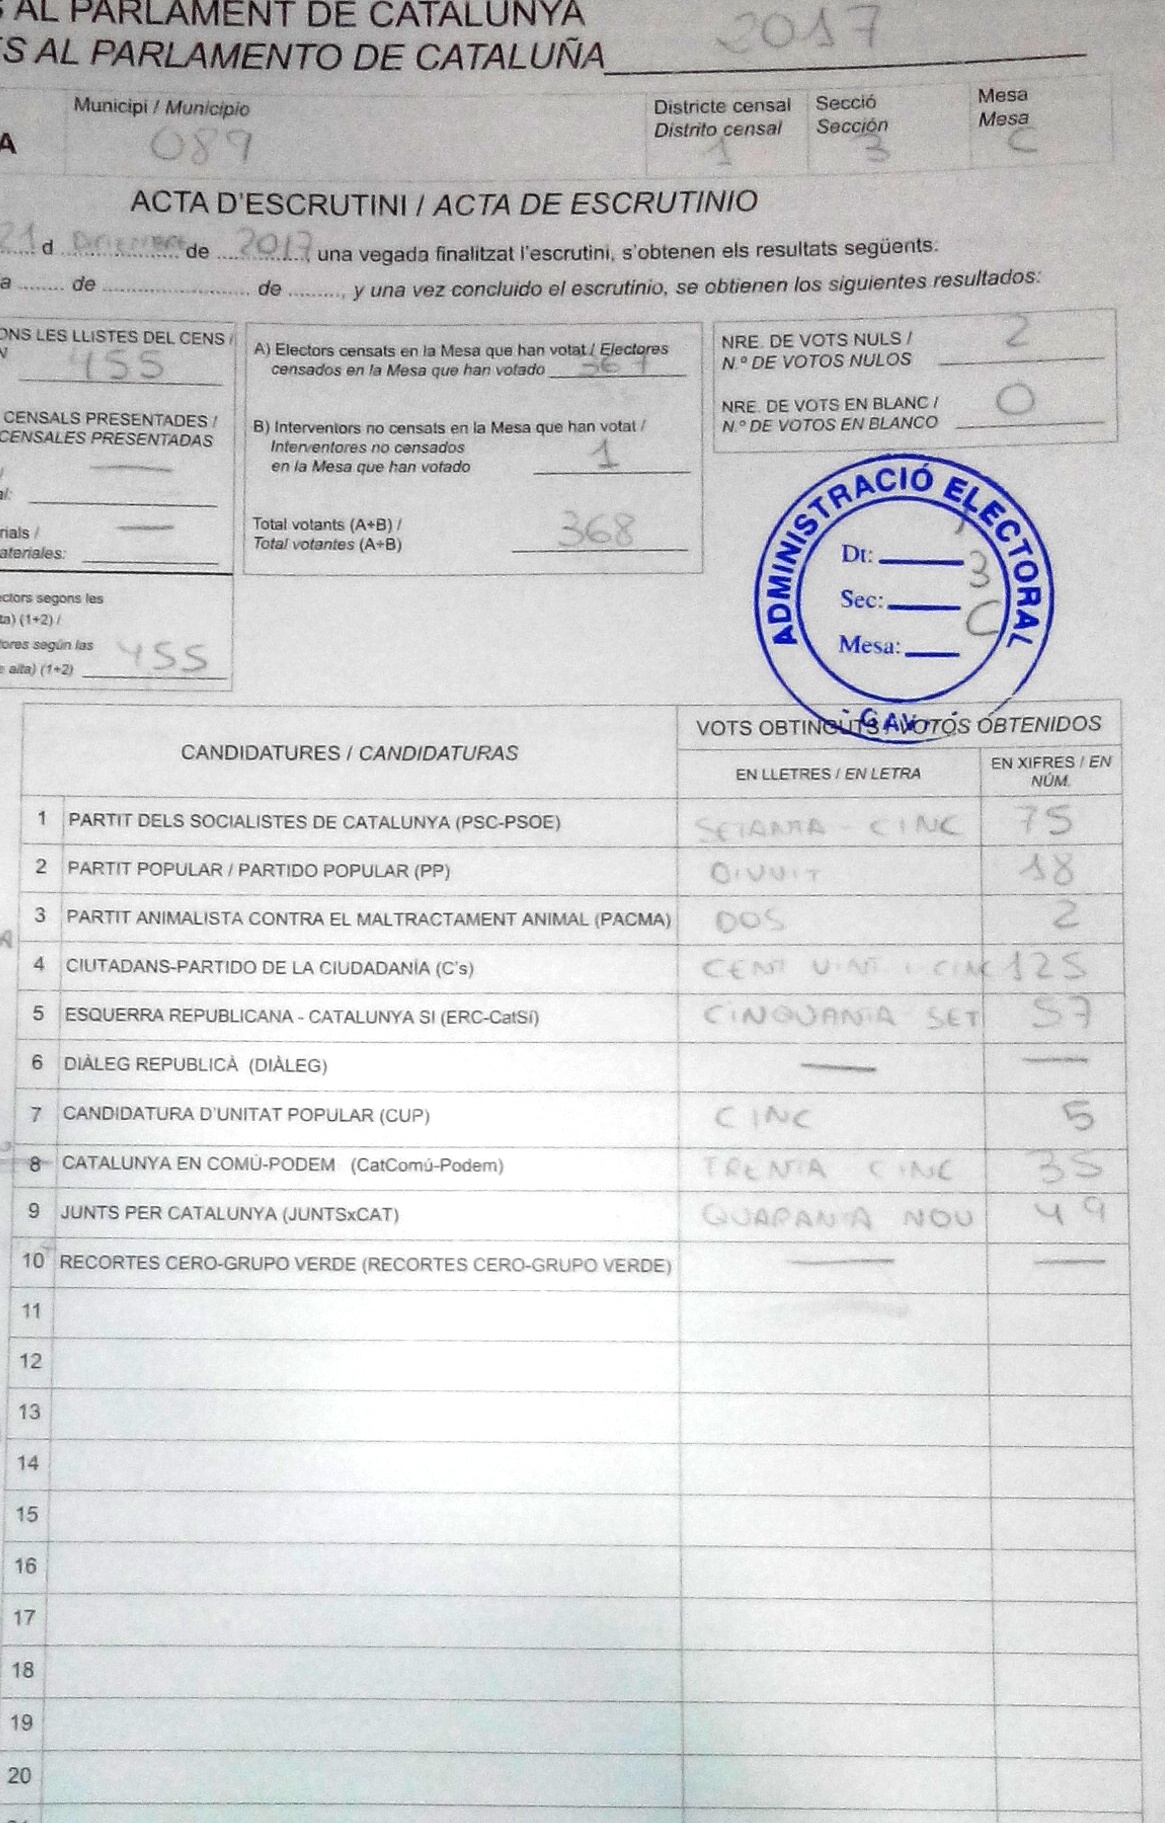 AL PARLAMENT DE CATALUNYA
S AL PARLAMENTO DE CATALUÑA 2017
Municipi / Municipio
089
Districte censal
Distrito censal
1
Secció
Sección
3
Mesa
Mesa
C
A
ACTA D'ESCRUTINI / ACTA DE ESCRUTINIO
21 d DICIEMBRE de 2017, una vegada finalitzat l'escrutini, s'obtenen els resultats següents:
a ........ de .............................. de ........., y una vez concluido el escrutinio, se obtienen los siguientes resultados:
ONS LES LLISTES DEL CENS /
N
455
CENSALS PRESENTADES /
CENSALES PRESENTADAS
al:
rials /
ateriales:
ectors segons les
ta) (1+2) /
tores según las
alta) (1+2) 455
A) Electors censats en la Mesa que han votat / Electores
censados en la Mesa que han votado 367
B) Interventors no censats en la Mesa que han votat /
Interventores no censados
en la Mesa que han votado 1
Total votants (A+B) /
Total votantes (A+B) 368
NRE. DE VOTS NULS /
N.º DE VOTOS NULOS 2
NRE. DE VOTS EN BLANC /
N.º DE VOTOS EN BLANCO 0
ADMINISTRACIÓ ELECTORAL
Dt: 1
Sec: 3
Mesa: C
CANDIDATURES / CANDIDATURAS
VOTS OBTINGUTS / VOTOS OBTENIDOS
EN LLETRES / EN LETRA
EN XIFRES / EN
NÚM.
1 PARTIT DELS SOCIALISTES DE CATALUNYA (PSC-PSOE) SETANTA - CINC 75
2 PARTIT POPULAR / PARTIDO POPULAR (PP) DIVUIT 18
3 PARTIT ANIMALISTA CONTRA EL MALTRACTAMENT ANIMAL (PACMA) DOS 2
4 CIUTADANS-PARTIDO DE LA CIUDADANÍA (C's) CENT VINT I CINC 125
5 ESQUERRA REPUBLICANA - CATALUNYA SI (ERC-CatSí) CINQUANTA SET 57
6 DIÀLEG REPUBLICÀ (DIÀLEG) — —
7 CANDIDATURA D'UNITAT POPULAR (CUP) CINC 5
8 CATALUNYA EN COMÚ-PODEM (CatComú-Podem) TRENTA CINC 35
9 JUNTS PER CATALUNYA (JUNTSxCAT) QUARANTA NOU 49
10 RECORTES CERO-GRUPO VERDE (RECORTES CERO-GRUPO VERDE) — —
11
12
13
14
15
16
17
18
19
20